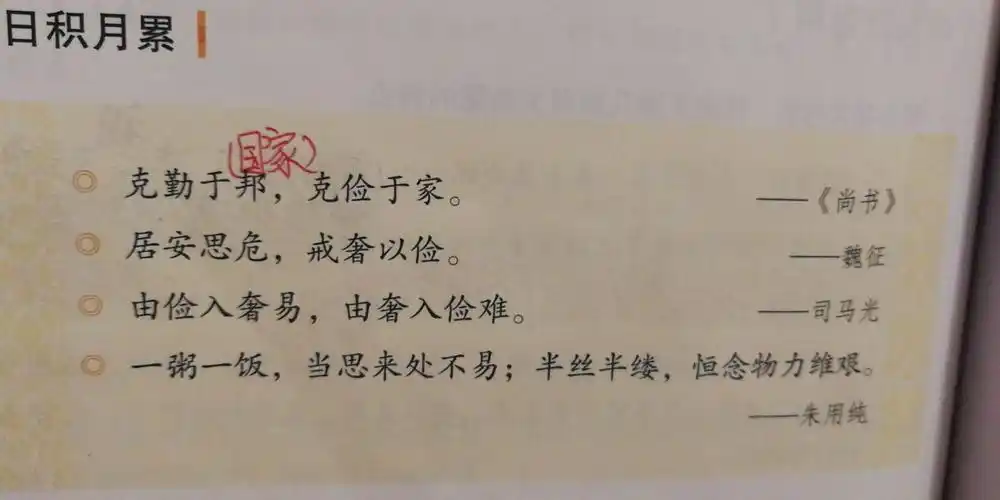 日积月累
(国家)
克勤于邦，克俭于家。 ——《尚书》
居安思危，戒奢以俭。 ——魏征
由俭入奢易，由奢入俭难。 ——司马光
一粥一饭，当思来处不易；半丝半缕，恒念物力维艰。
——朱用纯